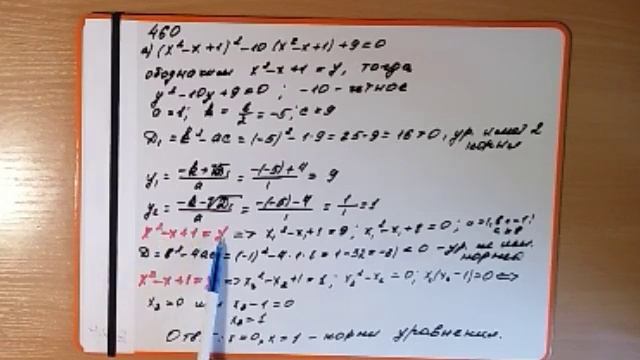 460
а) (x²-x+1)²-10(x²-x+1)+9=0
обозначим x²-x+1=y, тогда
y²-10y+9=0; -10-чётное
a=1; k=b/2=-5; c=9
D₁=k²-ac=(-5)²-1·9=25-9=16>0, ур. имеет 2 корня
y₁=(-k+√D₁)/a=(-(-5)+4)/1=9
y₂=(-k-√D₁)/a=(-(-5)-4)/1=1/1=1
x²-x+1=y => x₁²-x₁+1=9; x₁²-x₁+8=0; a=1; b=-1; c=8
D=b²-4ac=(-1)²-4·1·8=1-32=-31<0 - ур. не им. корней
x²-x+1= => x₂²-x₂+1=1; x₂²-x₂=0; x₂(x₂-1)=0 <=>
x₂=0 или x₂-1=0
x₂=1
x=0, x=1 - корни уравнения.